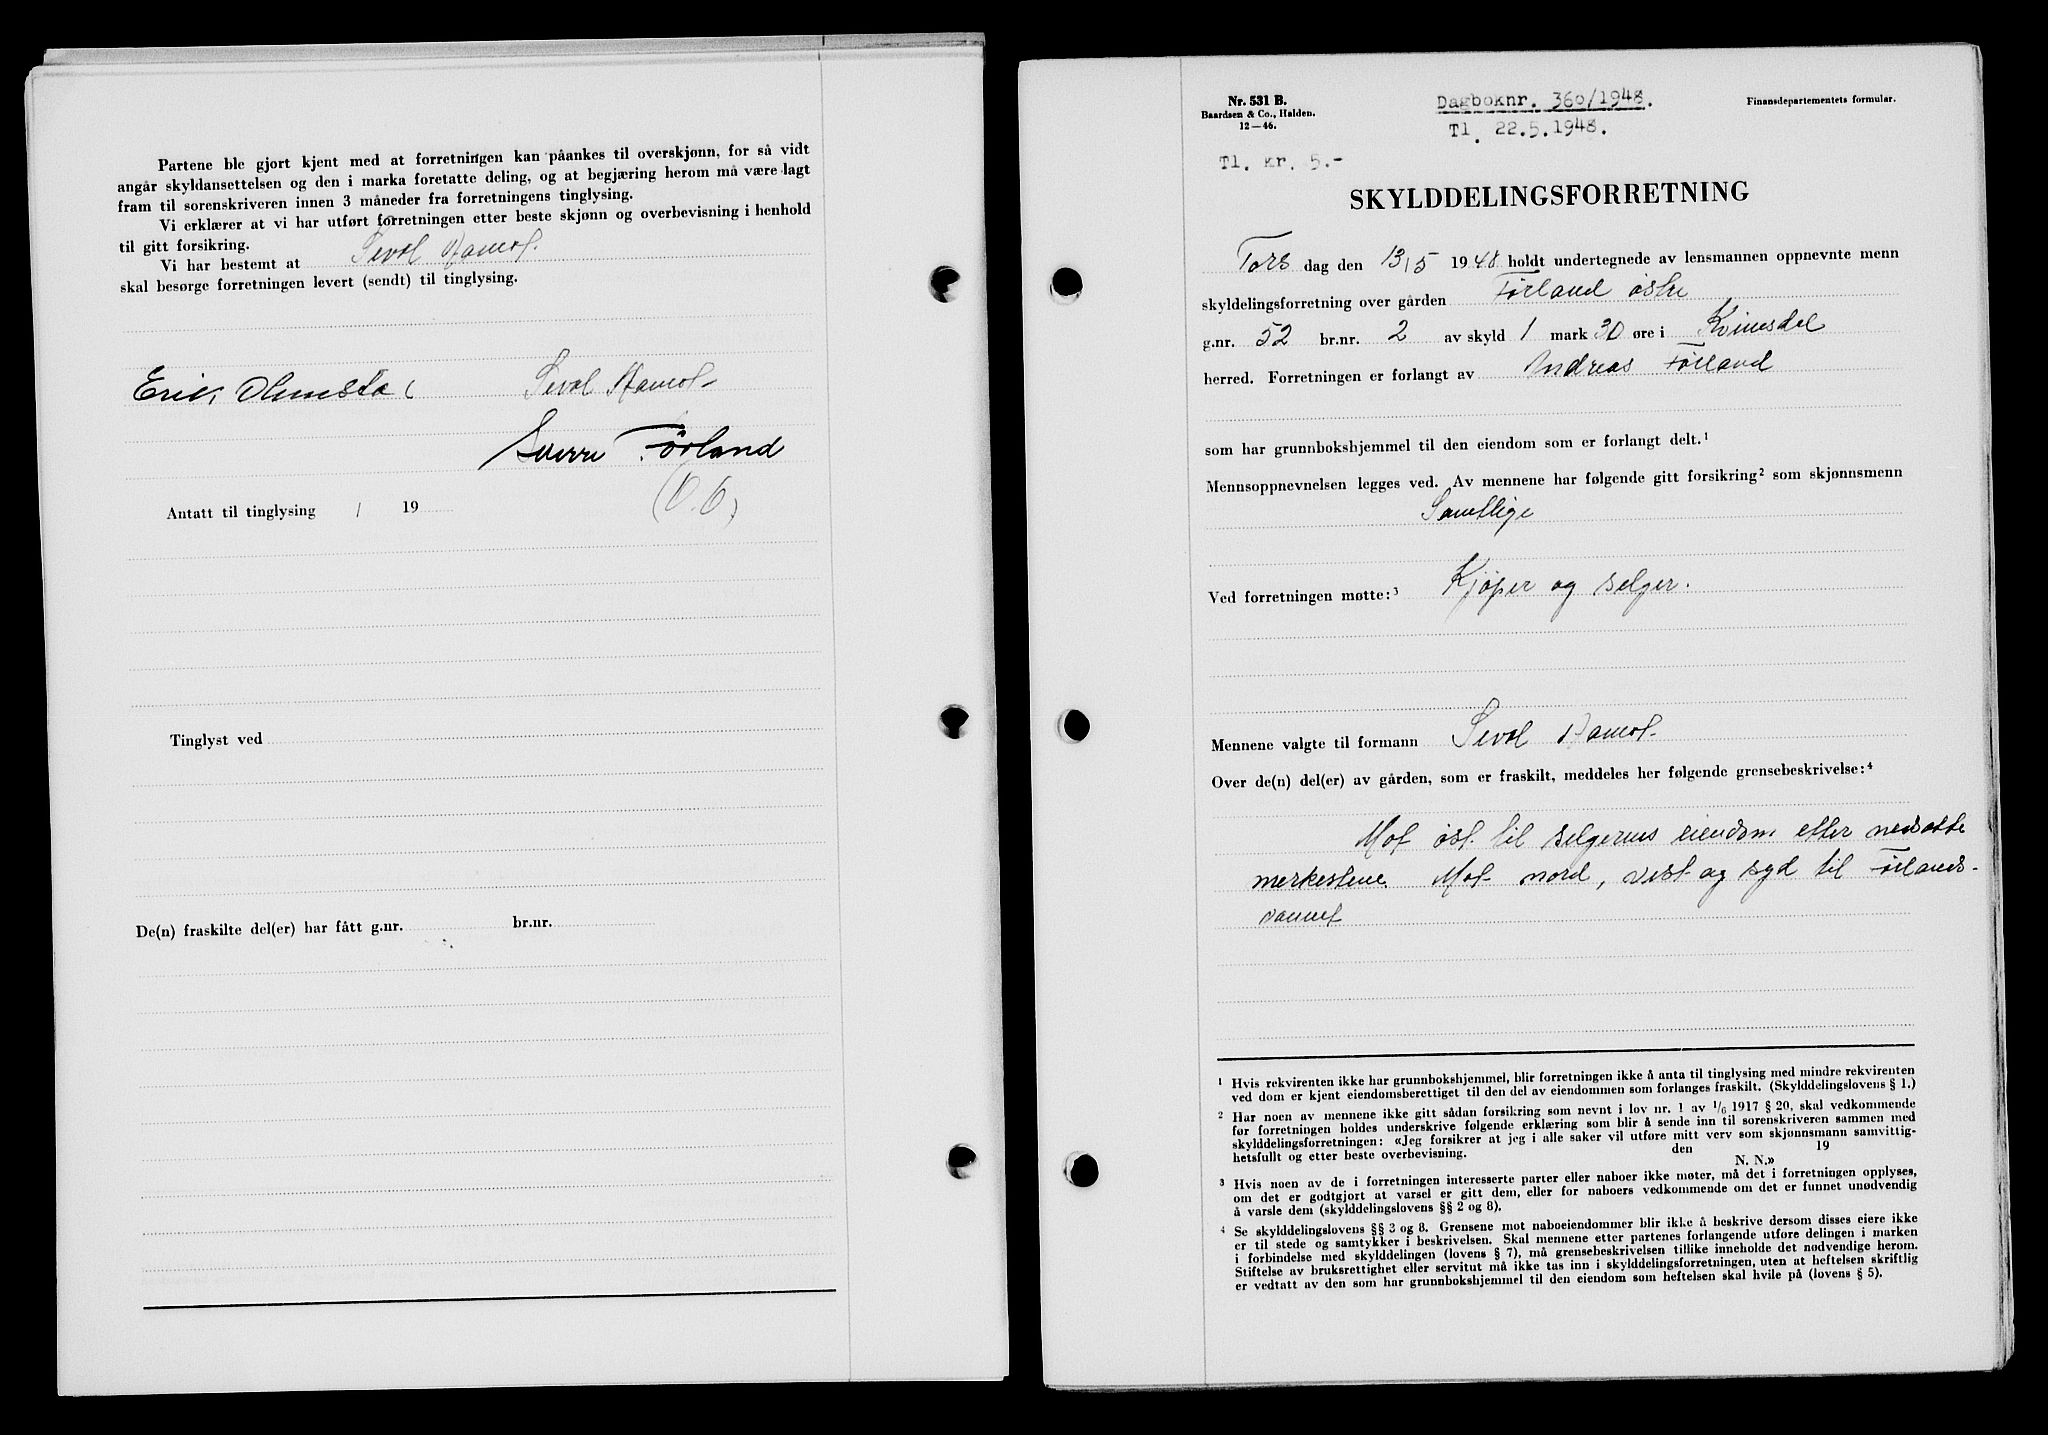 Partene ble gjort kjent med at forretningen kan påankes til overskjønn, for så vidt
angår skyldansettelsen og den i marka foretatte deling, og at begjæring herom må være lagt
fram til sorenskriveren innen 3 måneder fra forretningens tinglysing.
Vi erklærer at vi har utført forretningen etter beste skjønn og overbevisning i henhold
til gitt forsikring.
Vi har bestemt at Sevol
skal besørge forretningen levert (sendt) til tinglysing.
Erik Sevol
Sverre Førland
Antatt til tinglysing / 19
Tinglyst ved
De(n) fraskilte del(er) har fått g.nr. br.nr.
Nr. 531 B.
Baardsen & Co., Halden.
12—46.
Dagboknr. 360/1948.
Tl. 22.5.1948.
Finansdepartementets formular.
Tl. kr. 5.-
SKYLDDELINGSFORRETNING
Tors dag den 13/5 1948 holdt undertegnede av lensmannen oppnevnte menn
skyldelingsforretning over gården Førland østre
g.nr. 52 br.nr. 2 av skyld 1 mark 30 øre i Kvinesdal
herred. Forretningen er forlangt av Andreas Førland
som har grunnbokshjemmel til den eiendom som er forlangt delt.¹
Mennsoppnevnelsen legges ved. Av mennene har følgende gitt forsikring² som skjønnsmenn
Samtlige
Ved forretningen møtte:³ Kjøper og selger.
Mennene valgte til formann Sevol
Over de(n) del(er) av gården, som er fraskilt, meddeles her følgende grensebeskrivelse:⁴
Mot øst til selgerens eiendom etter nedsatte
merkestene. Mot nord, vest og syd til Førlands-
vannet
¹ Hvis rekvirenten ikke har grunnbokshjemmel, blir forretningen ikke å anta til tinglysing med mindre rekvirenten
ved dom er kjent eiendomsberettiget til den del av eiendommen som forlanges fraskilt. (Skylddelingslovens § 1.)
² Har noen av mennene ikke gitt sådan forsikring som nevnt i lov nr. 1 av 1/6 1917 § 20, skal vedkommende
før forretningen holdes underskrive følgende erklæring som blir å sende inn til sorenskriveren sammen med
skylddelingsforretningen: «Jeg forsikrer at jeg i alle saker vil utføre mitt verv som skjønnsmann samvittig-
hetsfullt og etter beste overbevisning. den 19
N. N.»
³ Hvis noen av de i forretningen interesserte parter eller naboer ikke møter, må det i forretningen opplyses,
om det er godtgjort at varsel er gitt dem, eller for naboers vedkommende om det er funnet unødvendig
å varsle dem (skylddelingslovens §§ 2 og 8).
⁴ Se skylddelingslovens §§ 3 og 8. Grensene mot naboeiendommer blir ikke å beskrive dersom disses eiere ikke
er til stede og samtykker i beskrivelsen. Skal mennene etter partenes forlangende utføre delingen i marken
i forbindelse med skylddelingen (lovens § 7), må grensebeskrivelsen tillike inneholde det nødvendige herom.
Stiftelse av bruksrettighet eller servitut må ikke tas inn i skylddelingsforretningen, uten at heftelsen skriftlig
er vedtatt av den som har grunnbokshjemmel til den eiendom som heftelsen skal hvile på (lovens § 5).